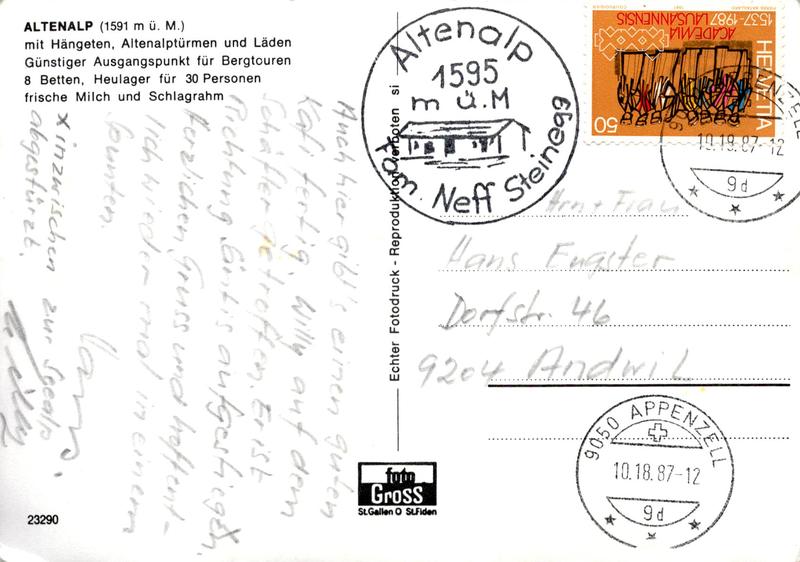 ALTENALP (1591 m ü. M.)
mit Hängeten, Altenalptürmen und Läden
Günstiger Ausgangspunkt für Bergtouren
8 Betten, Heulager für 30 Personen
frische Milch und Schlagrahm
Auch hier gibt's einen guten
Kafi fertig. Willy auf dem
Schäfler getroffen. Er ist
Richtung Säntis aufgestiegen. x
Herzlichen Gruss und hoffent-
lich wieder mal in einem
x inzwischen zur Seealp
abgestürzt.
Willy
23290
Echter Fotodruck - Reproduktion verboten si
foto
GROSS
St.Gallen O St.Fiden
Altenalp
1595
m ü. M
Fam. Neff Steinegg
HELVETIA
50
ACADEMIA
LAUSANNENSIS
1537-1987
10.18.87-12
9d
Hrn + Frau
Hans Engster
Dorfstr. 46
9204 Andwil
9050 APPENZELL
10.18.87-12
9d